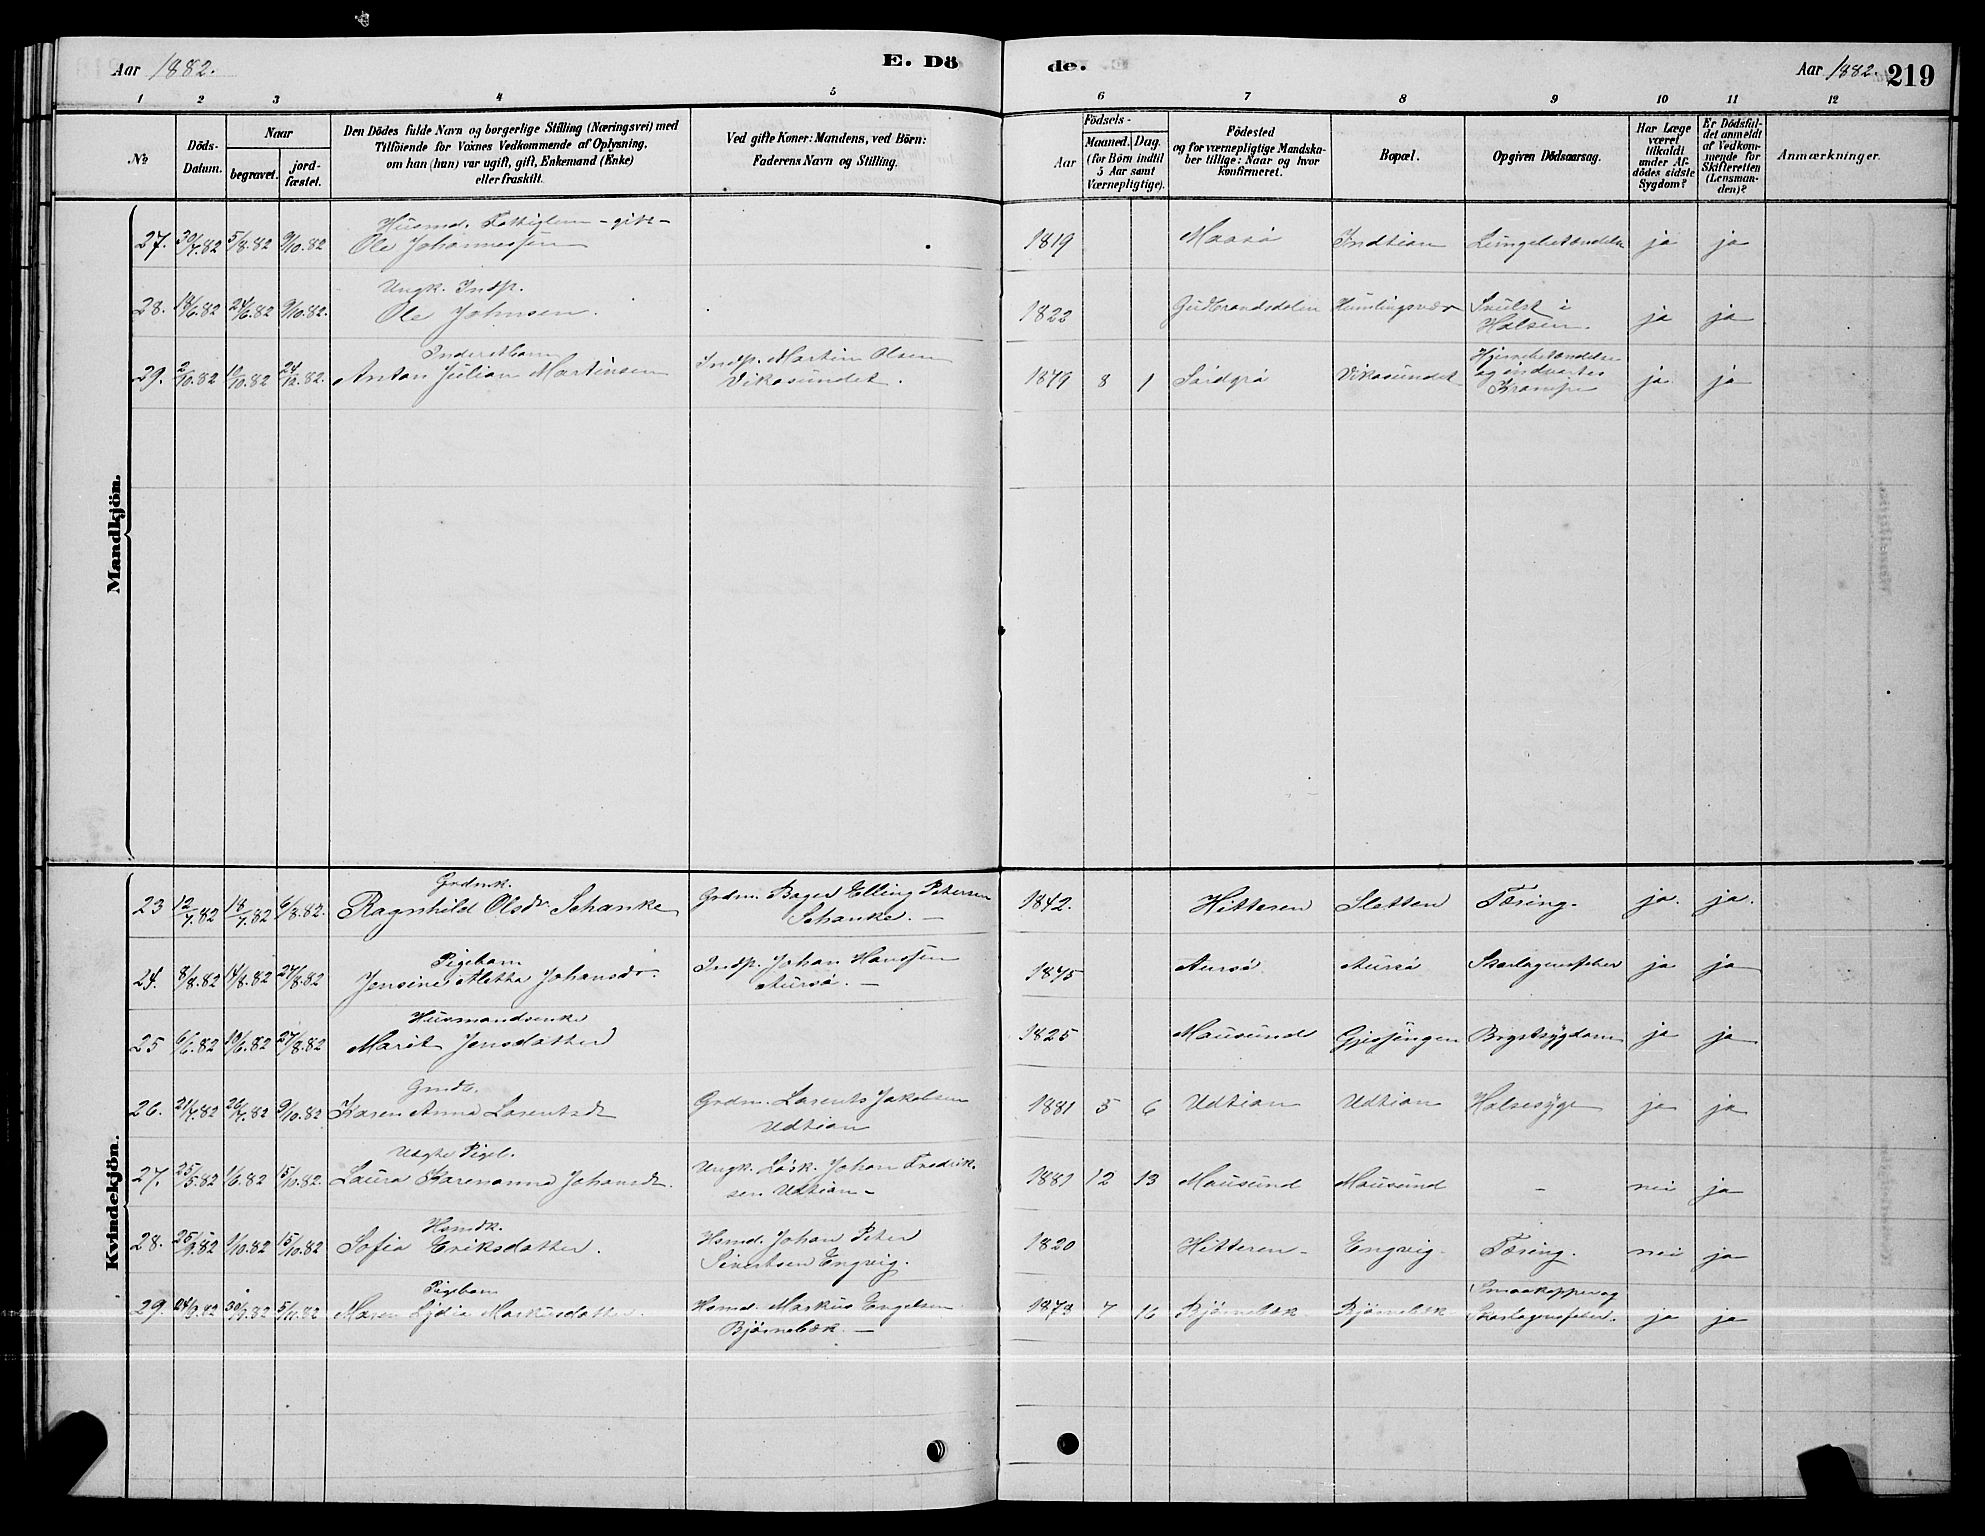 Aar 1882.
E. Dö
de.
Aar 1882.
219
1 2 3 4 5 6 7 8 9 10 11 12
No
Döds-
Datum.
Naar
begravet.
jord-
fæstet.
Den Dödes fulde Navn og borgerlige Stilling (Næringsvei) med
Tilföiende for Voxnes Vedkommende af Oplysning,
om han (hun) var ugift, gift, Enkemand (Enke)
eller fraskilt.
Ved gifte Koner: Mandens, ved Börn:
Faderens Navn og Stilling.
Födsels-
Aar
Maaned. Dag.
(for Börn indtil
5 Aar samt
Værnepligtige).
Födested
og for værnepligtige Mandska-
ber tillige: Naar og hvor
konfirmeret.
Bopæl.
Opgiven Dödsaarsag.
Har Læge
været
tilkaldt
under Af-
dödes sidste
Sygdom?
Er Dödsfal-
det anmeldt
af Vedkom-
mende for
Skifteretten
(Lensman-
den)?
Anmærkninger.
Mandkjön.
Husmd. Fattiglem - gift -
27. 30/7.82 5/8.82 9/10.82 Ole Johannessen 1819 Maasö Indtian Lungebetændelse ja ja
Ungk. Indp.
28. 18/6.82 24/6.82 9/10.82. Ole Johnsen. 1822 Gudbrandsdalen Humlingsvær Svulst i
Halsen. ja ja
Inderstbarn
29. 2/10.82 10/10.82 24/10.82. Anton Julian Martinsen Indp. Martin Olsen
Vikasundet. 1879 8 1 Sördyrö Vikasundet Hjernebetændelse
og indvortes
Krampe ja ja
Kvindekjön.
Grdmk.
23 12/7.82 18/7.82 6/8.82. Ragnhild Olsdr. Schanke Grdm. Bager Elling Petersen
Schanke. - 1842. Hitteren Sletten Tæring. ja. ja.
Pigebarn
24. 8/8.82 14/8.82 27/8.82 Jensine Aletta Johansdr. Indp. Johan Hansen
Aursö. - 1875 Aursö Aursö Skarlagensfeber ja ja
Husmandsenke
25 6/6.82 10/6.82 27/8.82 Marit Jensdatter 1825 Mausund Gjessingen Brystsygdom ja ja
26. 21/7.82 26/7.82 9/10.82 Karen Anna Lorentsdr Grdm. Lorents Jakobsen
Udtian 1881 5 6 Udtian Udtian Halssyge ja ja
Uægte Pigeb.
27. 25/5.82 1/6.82 15/10.82. Laura Karenanna Johansdr. Ungk. Lösk. Johan Fredrik-
sen Udtian - 1881 12 13 Mausund Mausund - nei ja
Hsmdk.
28. 25/9.82 1/10.82 15/10.82 Sofia Eriksdatter. Hsmd. Johan Peter
Sivertsen Engvig. 1820 Hitteren - Engvig. Tæring. nei ja
Pigebarn
29. 24/9.82 30/9.82 5/11.82 Maren Lydia Markusdatter Hsmd. Markus Engelsen
Björnebæk. - 1873 7 16 Björnebæk Björnebæk Smaakopper og
Skarlagensfeber. ja ja